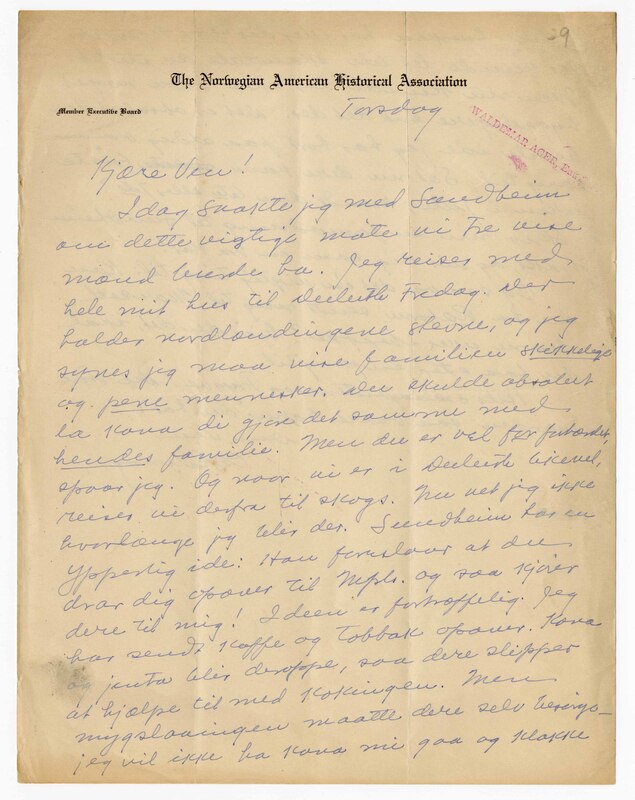 29
The Norwegian American Historical Association
Member Executive Board
Torsdag
WALDEMAR AGER, Eau
Kjære Ven!
Idag snakte jeg med Sundheim
om dette vigtige møte vi tre vise
mænd burde ha. Jeg reiser med
hele mit hus til Deeluth Fredag. Der
holder nordlændingene stevne, og jeg
synes jeg maa vise familien skikkelige
og pene mennesker. Du skulde absolut
la kona di gjøre det samme med
hendes familie. Men du er vel for forhærdet,
spaar jeg. Og naar vi er i Deeluth likevel,
reiser vi derfra til skogs. Nu vet jeg ikke
hvorlænge jeg blir der. Sundheim har en
ypperlig ide: Han foreslaar at du
drar dig opover til Mpls. og saa kjører
dere til mig! Ideen er fortræffelig. Jeg
har sendt Kaffe og Tobbak opover. Kona
og jenta blir deroppe, saa dere slipper
at hjælpe til med Kokingen. Men
mygslaaingen maatte dere selv besørge—
jeg vil ikke ha Kona mi gaa og klakke